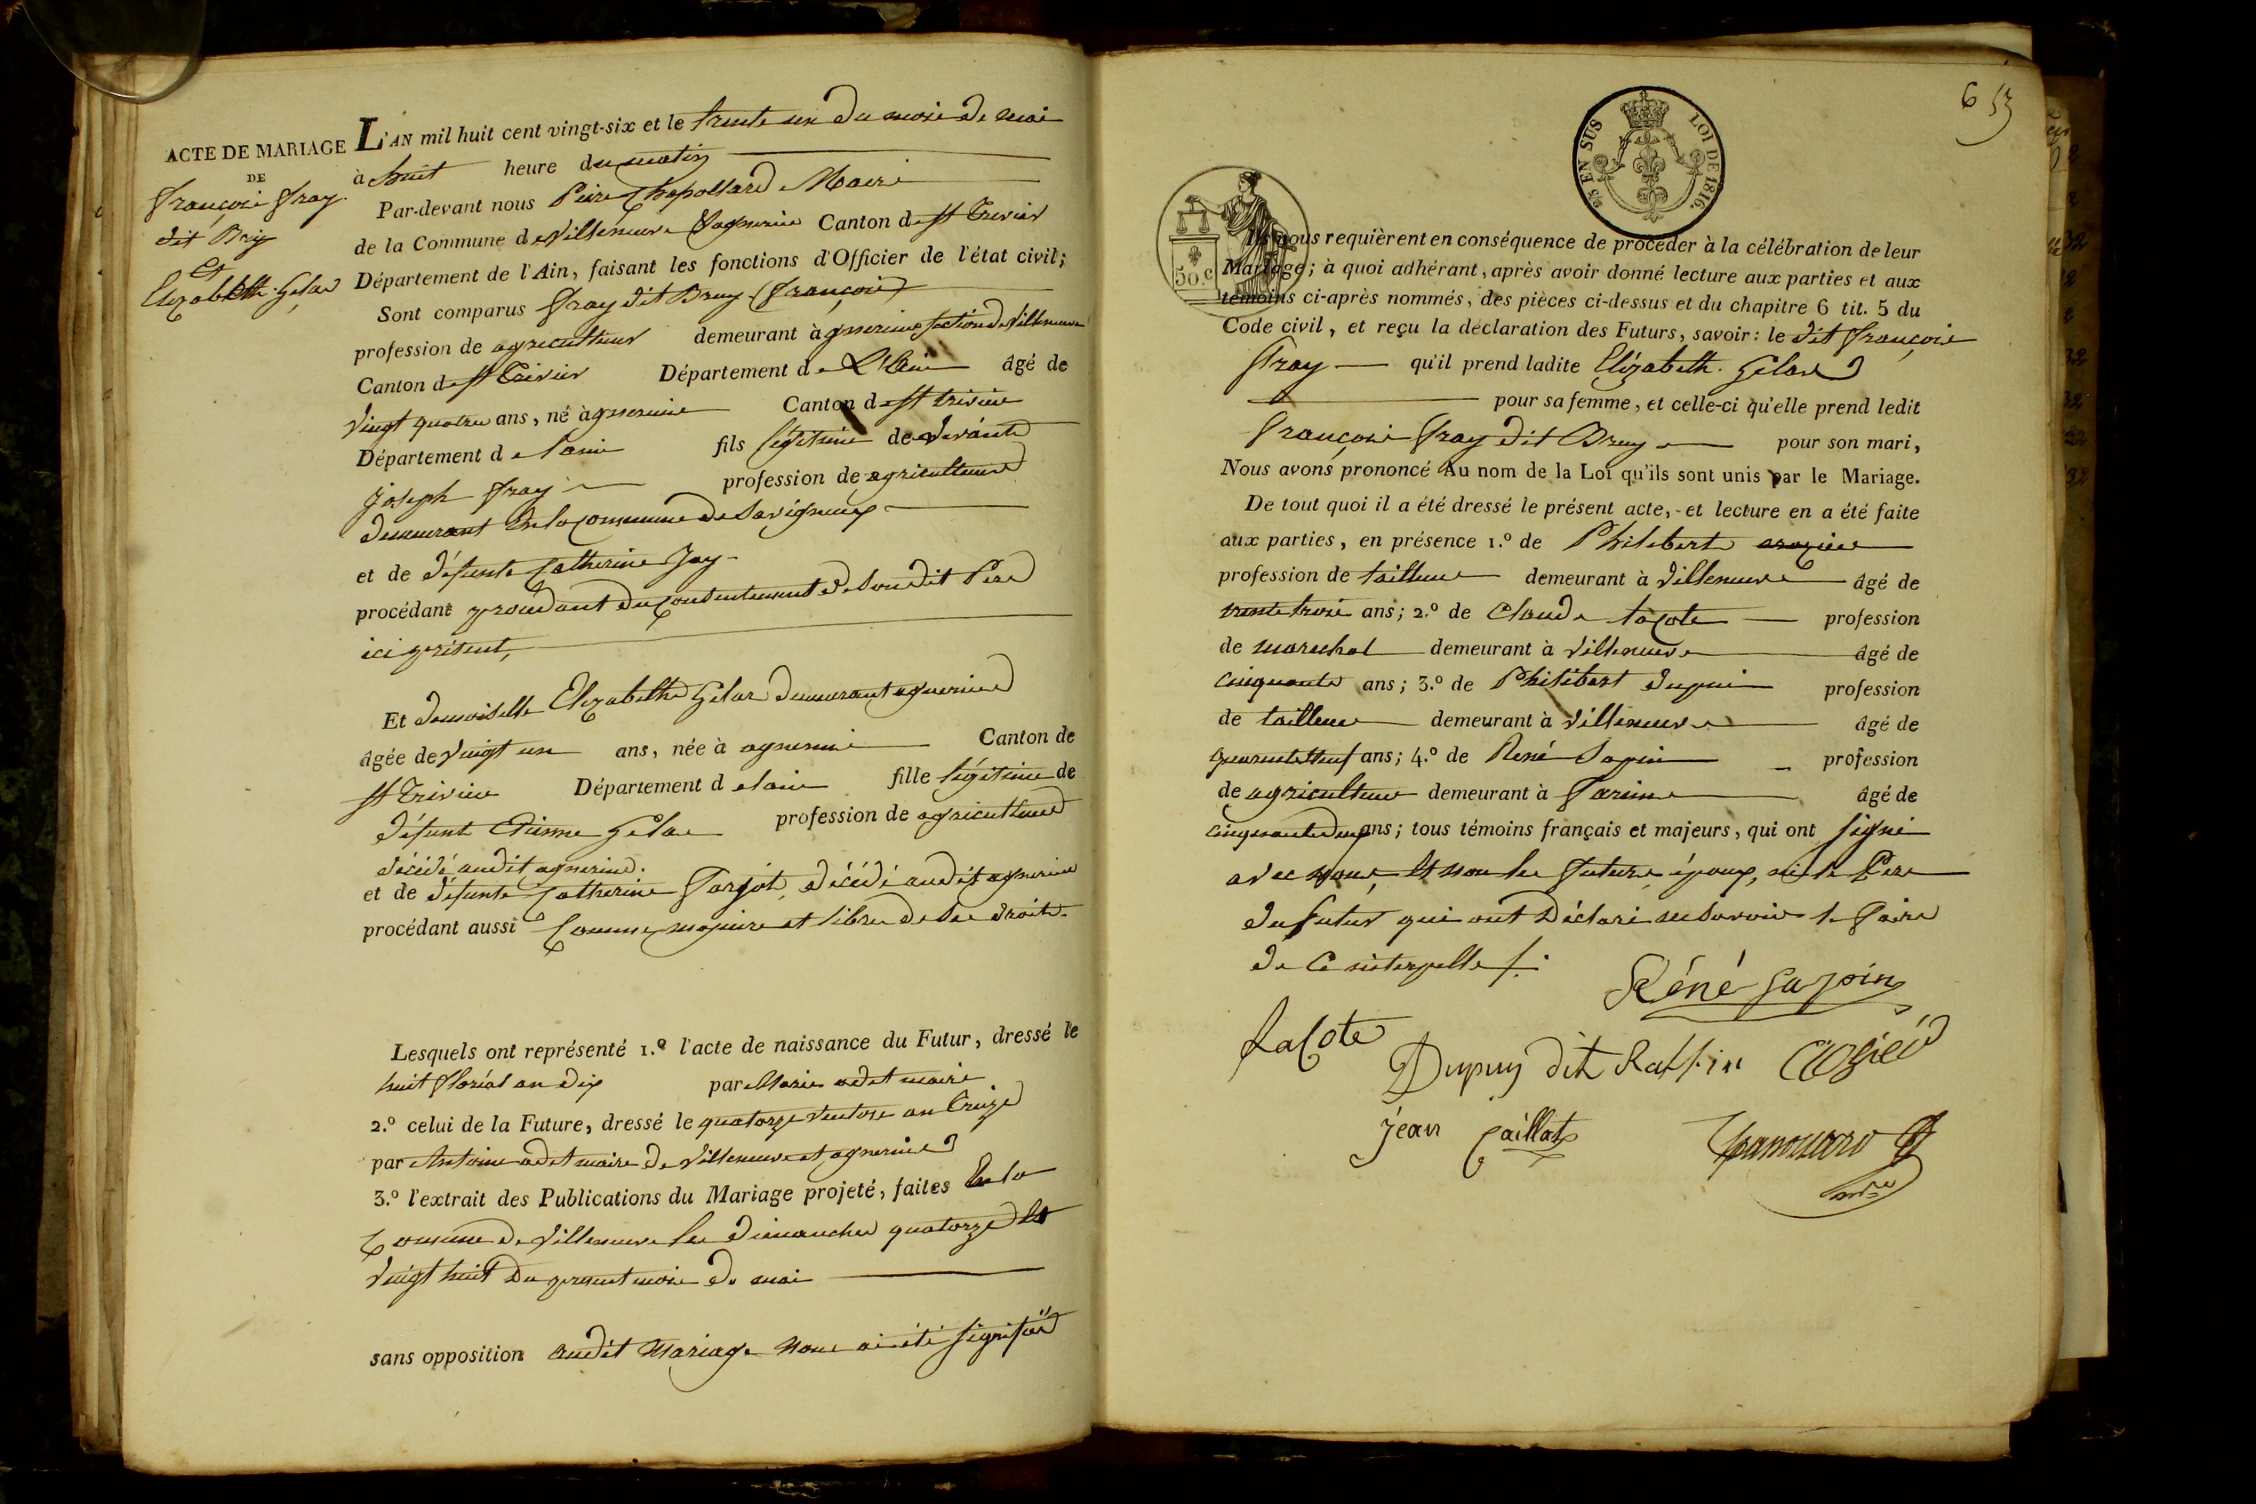 ACTE DE MARIAGE
DE
françois fray
dit Bruy
Et
Elizabeth Gelas
L'AN mil huit cent vingt-six et le trente un du mois de mai
à huit heure du matin
Par-devant nous Pierre Chapollard Maire
de la Commune de Villeneuve & agnerins Canton de st Trivier
Département de l'Ain, faisant les fonctions d'Officier de l'état civil;
Sont comparus fray dit Bruy (françois)
profession de agriculteur demeurant à agnerins section de Villeneuve
Canton de st Trivier Département de L'Ain âgé de
vingt quatre ans, né à agnerins Canton de st trivier
Département de lain fils légitime de
joseph fray profession de agriculteur
demeurant en la commune de Savigneux
et de défunte Catherine Joy
procédant procédant du consentement de son dit Père
ici présent,
Et demoiselle Elizabeth Gelas demeurant agnerins
âgée de vingt un ans, née à agnerins Canton de
st Trivier Département de lain fille légitime de
défunt Etienne Gelas profession de agriculteur
décédé audit agnerins.
et de défunte Catherine Farjot, décédé audit agnerins
procédant aussi Comme majeure et libre de ses droits
Lesquels ont représenté 1.º l'acte de naissance du Futur, dressé le
huit floréal an dix par Marie odet maire
2.º celui de la Future, dressé le quatorze ventose an treize
par Antoine odet maire de Villeneuve et agnerins
3.º l'extrait des Publications du Mariage projeté, faites En la
Commune de Villeneuve les dimanches quatorze Et
vingt huit du présent mois de mai
sans opposition audit Mariage nous ai été signifiée
6 53
EN SUS LOI DE 1816.
50.c
Ils nous requièrent en conséquence de procéder à la célébration de leur
Mariage; à quoi adhérant, après avoir donné lecture aux parties et aux
témoins ci-après nommés, des pièces ci-dessus et du chapitre 6 tit. 5 du
Code civil, et reçu la déclaration des Futurs, savoir: le dit françois
Fray qu'il prend ladite Elizabeth Gelas
pour sa femme, et celle-ci qu'elle prend ledit
François fray dit Bruy pour son mari,
Nous avons prononcé Au nom de la Loi qu'ils sont unis par le Mariage.
De tout quoi il a été dressé le présent acte, et lecture en a été faite
aux parties, en présence 1.º de Philibert
profession de tailleur demeurant à Villeneuve âgé de
trente trois ans; 2.º de Claude lacote profession
de marechal demeurant à Villeneuve âgé de
cinquante ans; 3.º de Philibert dupui profession
de tailleur demeurant à Villeneuve âgé de
quarente neuf ans; 4.º de René Sapin profession
de agriculteur demeurant à Fareins âgé de
cinquante deux ans; tous témoins français et majeurs, qui ont signé
avec nous, Et non les future époux, ni le Père
du futur qui ont déclaré ne savoir le faire
de ce interpellé /.
Réné Sapoin
LaCote
Dupuy dit Rattin
jean Caillat
mre